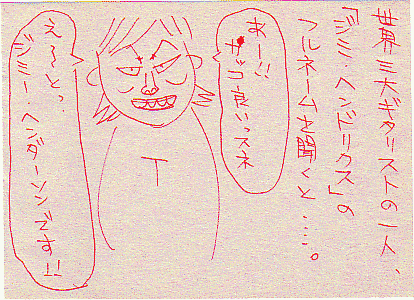 世界三大ギタリストの一人、
「ジミ・ヘンドリクス」の
フルネームを聞くと…。
あー!!
ガッコ良いっスネ
え〜とっ
ジミー・ヘンダーソンです!!
T